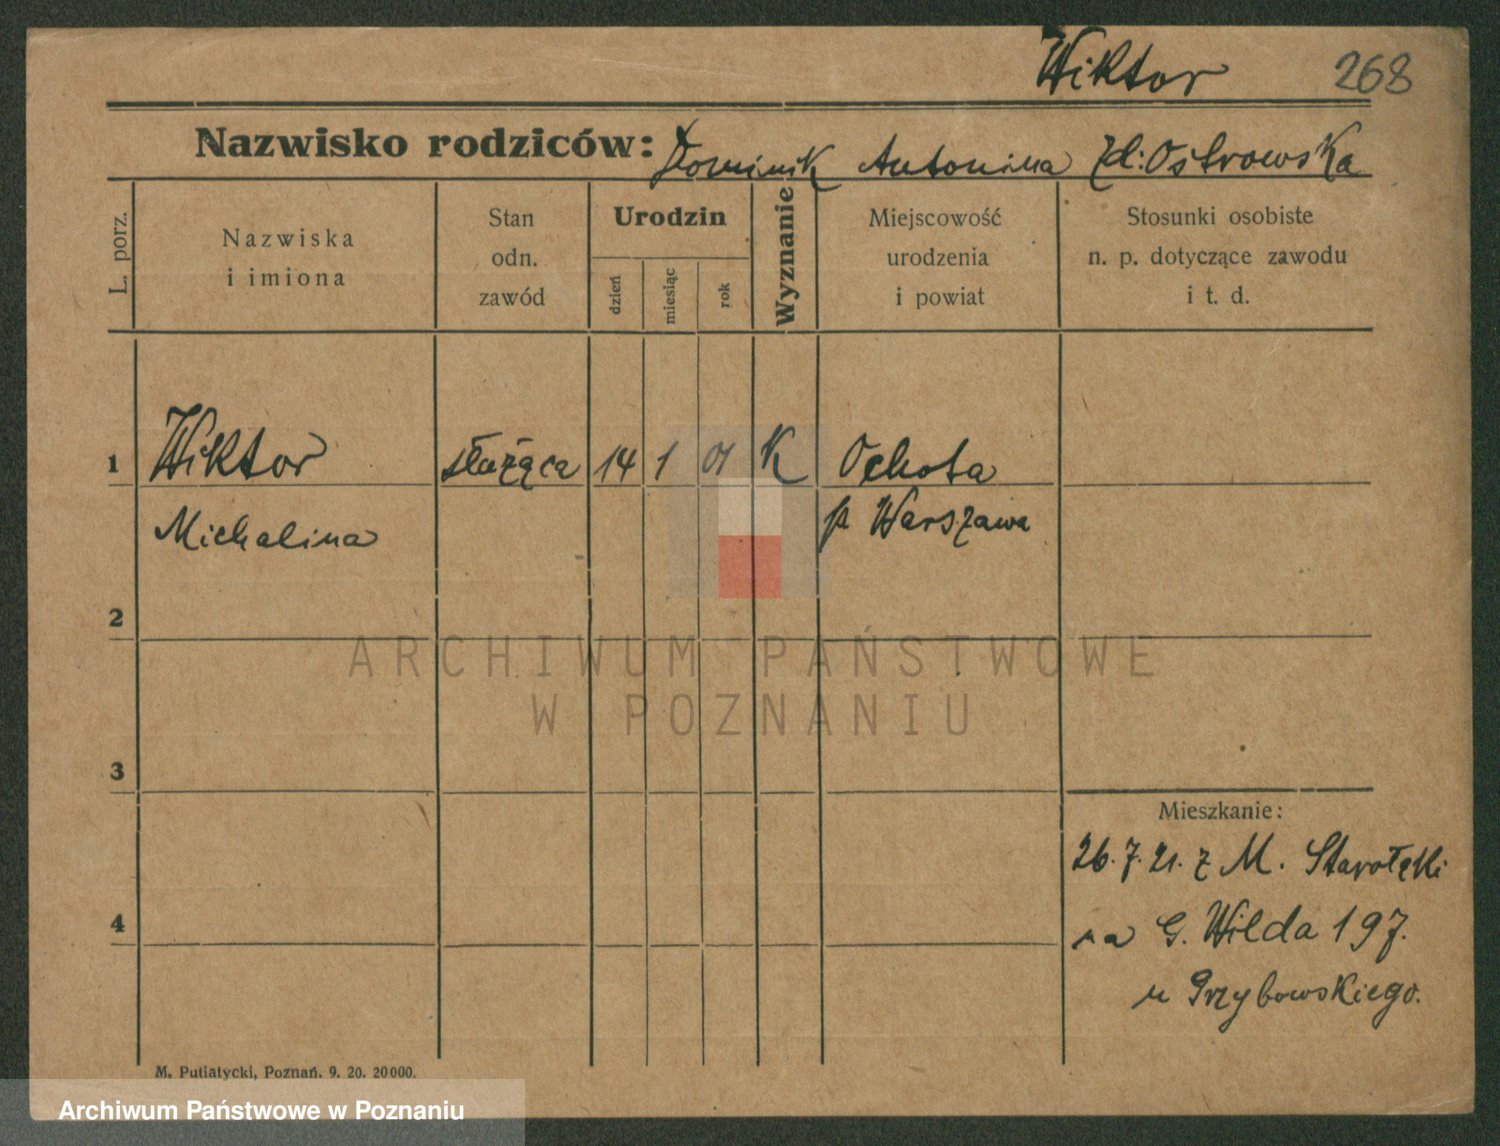 Wiktor 268
Nazwisko rodziców: Dominik Antonina Zd: Ostrowska
L. porz.
Nazwiska
i imiona
Stan
odn.
zawód
Urodzin
dzień
miesiąc
rok
Wyznanie
Miejscowość
urodzenia
i powiat
Stosunki osobiste
n. p. dotyczące zawodu
i t. d.
1 Wiktor służąca 14 1 01 K Ochota
Michalina p Warszawa
2
ARCHIWUM PAŃSTWOWE
W POZNANIU
3
Mieszkanie:
26.7.21. z M. Starołęki
4
na G. Wilda 197.
u Przybowskiego.
M. Putiatycki, Poznań. 9. 20. 20000.
Archiwum Państwowe w Poznaniu